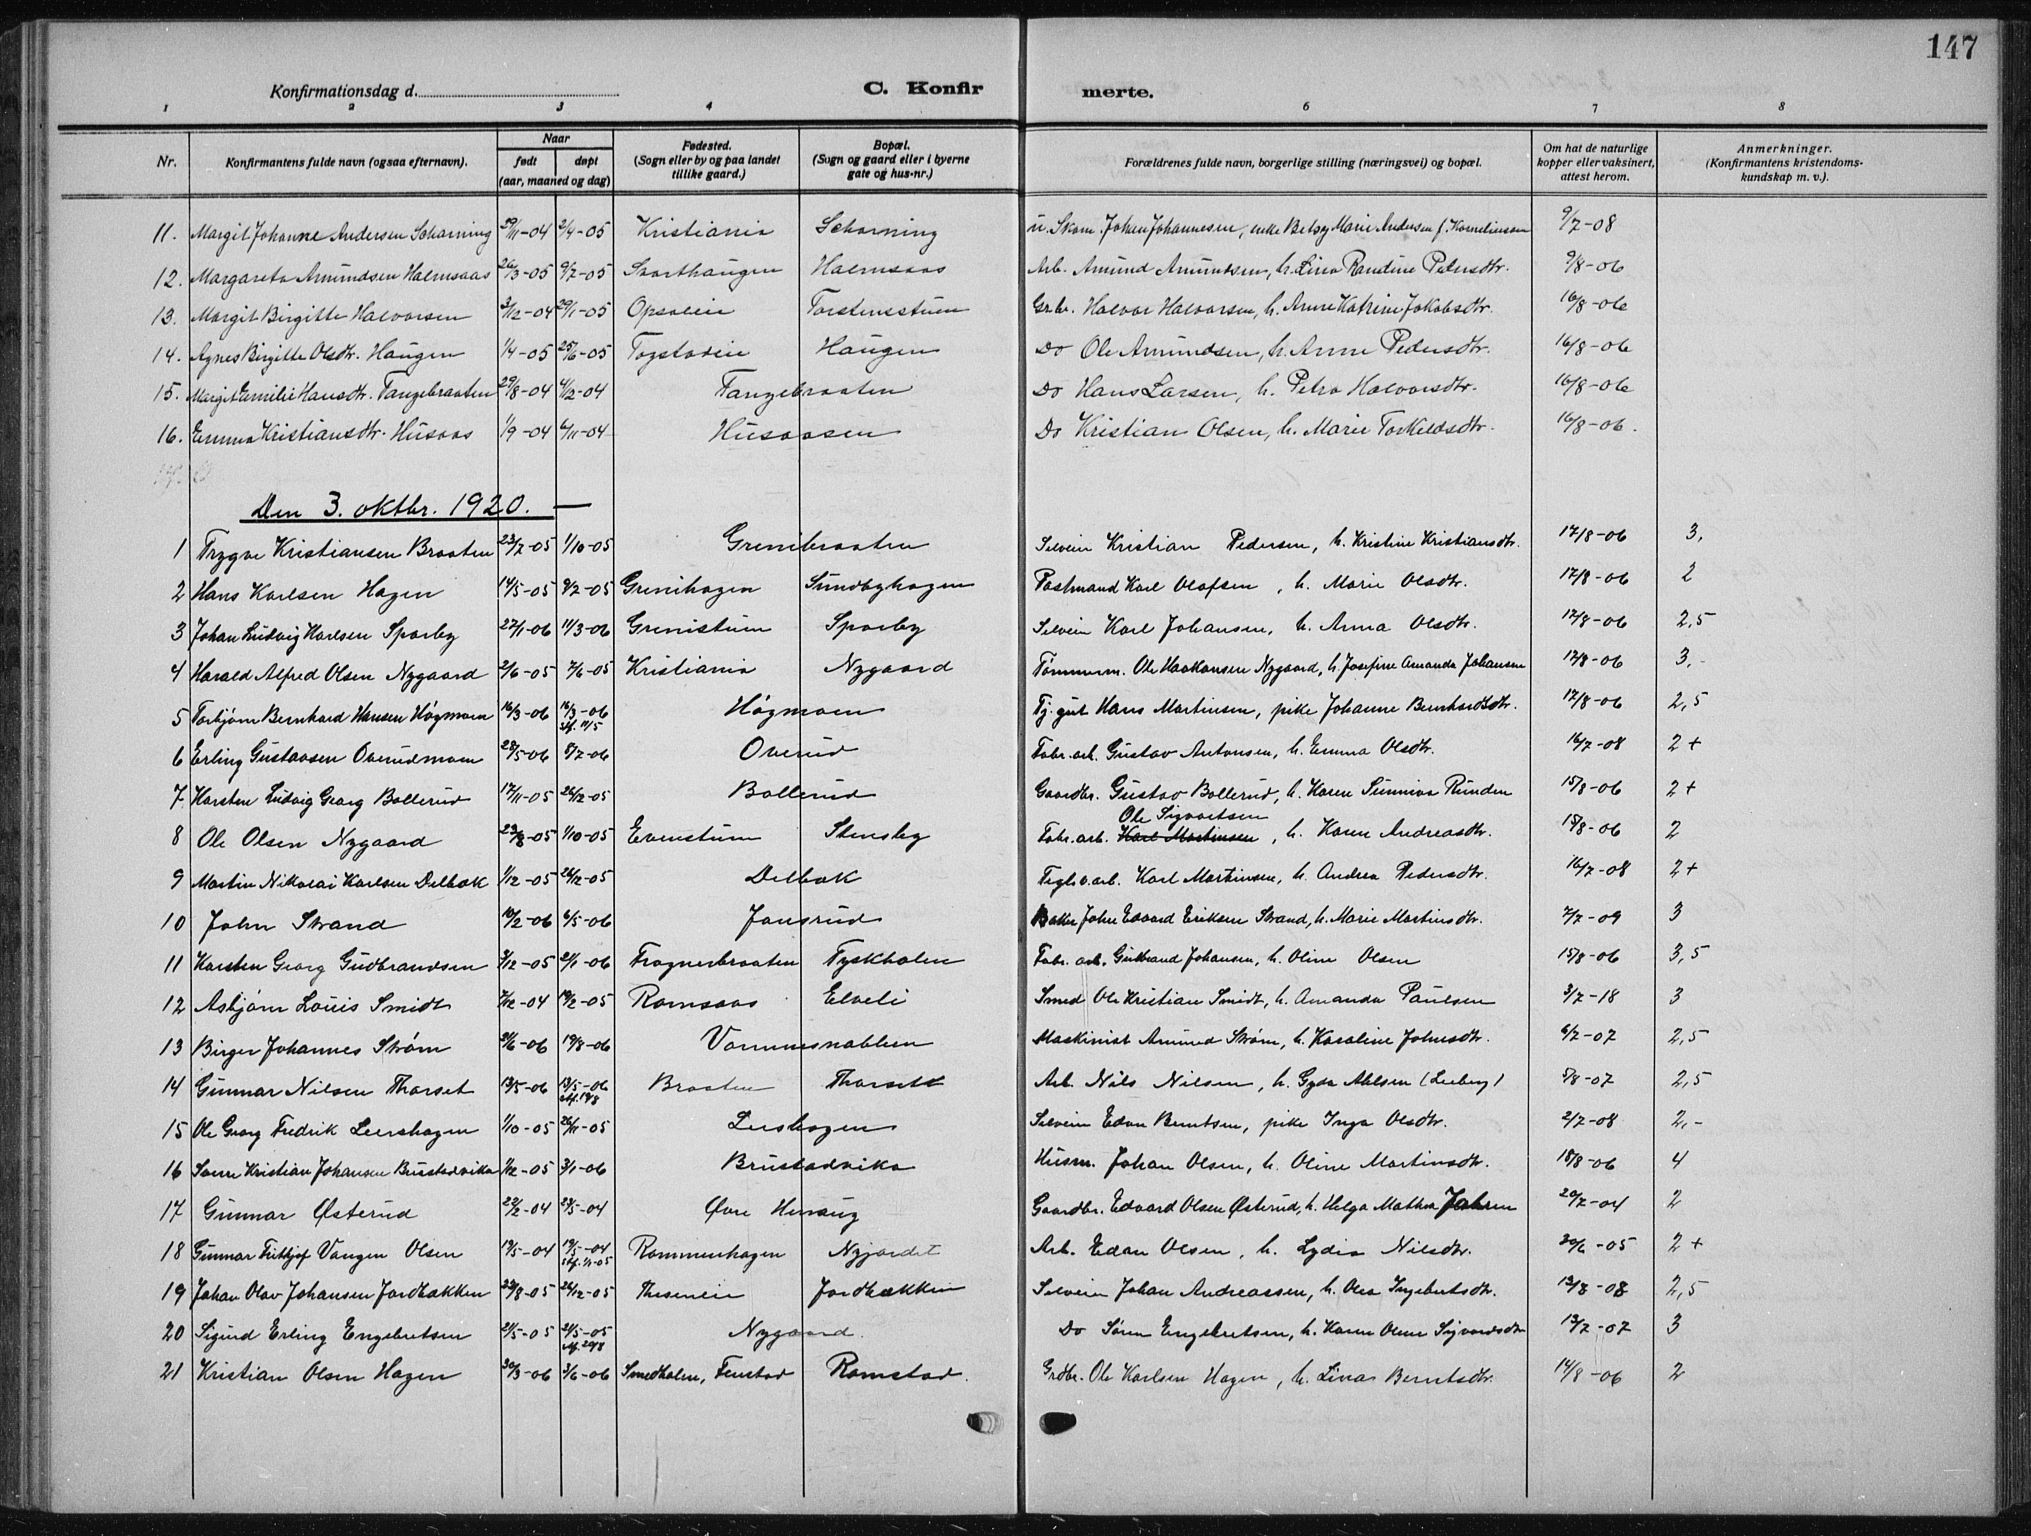 147
Konfirmationsdag d. C. Konfir merte.
1 2 3 4 6 7 8
Nr. Konfirmantens fulde navn (ogsaa efternavn). Naar født døpt (aar, maaned og dag) Fødested. (Sogn eller by og paa landet tillike gaard.) Bopæl. (Sogn og gaard eller i byerne gate og hus-nr.) Forældrenes fulde navn, borgerlige stilling (næringsvei) og bopæl. Om hat de naturlige kopper eller vaksinert, attest herom. Anmerkninger. (Konfirmantens kristendoms-kundskap m. v.).
11. Margit Johanne Andersen Scharning 29/11-04 2/4-05 Kristiania Scharning u. Skom. Johan Johannesen, enke Betsy Marie Andersen f. Kornelinssen 9/7-08
12. Margareta Amundsen Halmsaas 26/3-05 9/7-05 Svarthaugen Halmsaas Arb. Amund Amundsen, h. Lina Randine Petersdtr. 9/8-06
13. Margit Birgitte Halvorsen 3/12-04 29/1-05 Opsaleie Torstensstuen Grbr. Halvor Halvorsen, h. Anne Katrine Jakobsdtr. 16/8-06
14. Agnes Birgitte Olsdtr. Haugen 1/4-05 25/6-05 Togstadeie Haugen Do Ole Amundsen, h. Anne Pedersdtr. 16/8-06
15. Margit Emilie Hansdtr. Tangebraaten 29/8-04 4/12-04 Tangebraaten Do Hans Larsen, h. Petra Halvorsdtr. 16/8-06
16. Emma Kristiansdtr. Husaas 1/9-04 6/11-04 Husaasen Do Kristian Olsen, h. Marie Torkildsdtr. 16/8-06.
Den 3. oktbr. 1920.
1 Trygve Kristiansen Braaten 23/7-05 1/10-05 Grenibraaten Selveier Kristian Pedersen, h. Kristine Kristiansdtr. 17/8-06 3,
2 Hans Karlsen Hagen 14/5-05 9/7-05 Grenihagen Sundbyhagen Postmand Karl Olafsen, h. Marie Olsdtr. 17/8-06 2
3 Johan Ludvig Karlsen Sparby 27/1-06 11/3-06 Grenistuen Sparby Selveier Karl Johansen, h. Anna Olsdtr. 17/8-06 2,5
4 Harald Alfred Olsen Nygaard 2/6-05 7/6-05 Kristiania Nygaard Tømmerm. Ole Haakonsen Nygaard, h. Josefine Amanda Johansen 17/8-06 3.-
5 Torbjørn Bernhard Hansen Høgmoen 16/3-06 16/3-06 st. 11/5 Høgmoen Tj. gut Hans Martinsen, pike Johanne Bernhardsdtr. 17/8-06 2,5
6 Erling Gustavsen Overudmoen 28/5-06 8/7-06 Overud Fabr. arb. Gustav Antonsen, h. Emma Olsdtr. 16/7-08 2+
7 Karsten Ludvig Georg Bollerud 17/11-05 26/12-05 Bollerud Gaardbr. Gustav Bollerud, h. Karen Sunniva Runden 15/8-06 2+
8 Ole Olsen Nygaard 23/8-05 1/10-05 Evenstuen Stensby Fabr. arb. Karl Martinsen Ole Sigvartsen, h. Karen Andreasdtr. 15/8-06 2
9 Martin Nikolai Karlsen Delbæk 1/12-05 26/12-05 Delbæk Teglv.arb. Karl Martinsen, h. Andrea Pedersdtr. 16/7-08 2+
10 John Strand 10/2-06 6/5-06 Jønsrud Baker John Edvard Eriksen Strand, h. Marie Martinsdtr. 7/7-09 3
11 Karsten Georg Gudbrandsen 3/12-05 2/1-06 Frognerbraaten Tyskholen Fabr. arb. Gudbrand Johansen, h. Oline Olsen 15/8-06 3,5
12 Asbjørn Louis Smidt 7/12-04 19/2-05 Ramsaas Elveli Smed Ole Kristian Smidt, h. Amanda Paulsen 3/7-18 3
13 Birger Johannes Strøm 24/6-06 19/8-06 Vormnesnabben Maskinist Amund Strøm, h. Karoline Johnsdtr. 6/7-07 2,5
14 Gunnar Nilsen Thorset 13/5-06 13/5-06 st. 19/8 Braaten Thorset Arb. Nils Nilsen, h. Gyda Ahlsen (Leeberg) 5/8-07 2,5
15 Ole Georg Fredrik Leershagen 1/10-05 26/11-05 Leershagen Selveier Edvin Berntsen, pike Inga Olsdtr. 2/7-08 2,-
16 Sørren Kristian Johansen Brustadvika 1/12-05 3/1-06 Brustadvika Husm. Johan Olsen, h. Oline Martinsdtr. 18/8-06 4
17 Gunnar Østerud 22/2-04 23/5-04 Øvre Hennung Gaardbr. Edvard Olsen Østerud, h. Helga Mathea Jahren 20/7-04 2
18 Gunnar Fritjof Vangen Olsen 19/5-04 19/5-04 st. 1/1-05 Rommenhagen Nyjordet Arb. Edvin Olsen, h. Lydia Nilsdtr. 20/6-05 2+
19 Johan Olav Johansen Jordbækken 23/8-05 26/12-05 Theseneie Jordbækken Selveier Johan Andreassen, h. Olea Ingebretsdtr. 13/8-08 2,5
20 Sigurd Erling Engebretsen 21/5-05 21/5-05 st. 20/8 Nygaard. Do Søren Engebretsen, h. Karen Oline Sigvardsdtr 12/7-07 3
21 Kristian Olsen Hagen 30/3-06 3/6-06 Smedholen, Fenstad Ramstad. Grdbr. Ole Karlsen Hagen, h. Lina Berntsdtr. 14/8-06 2